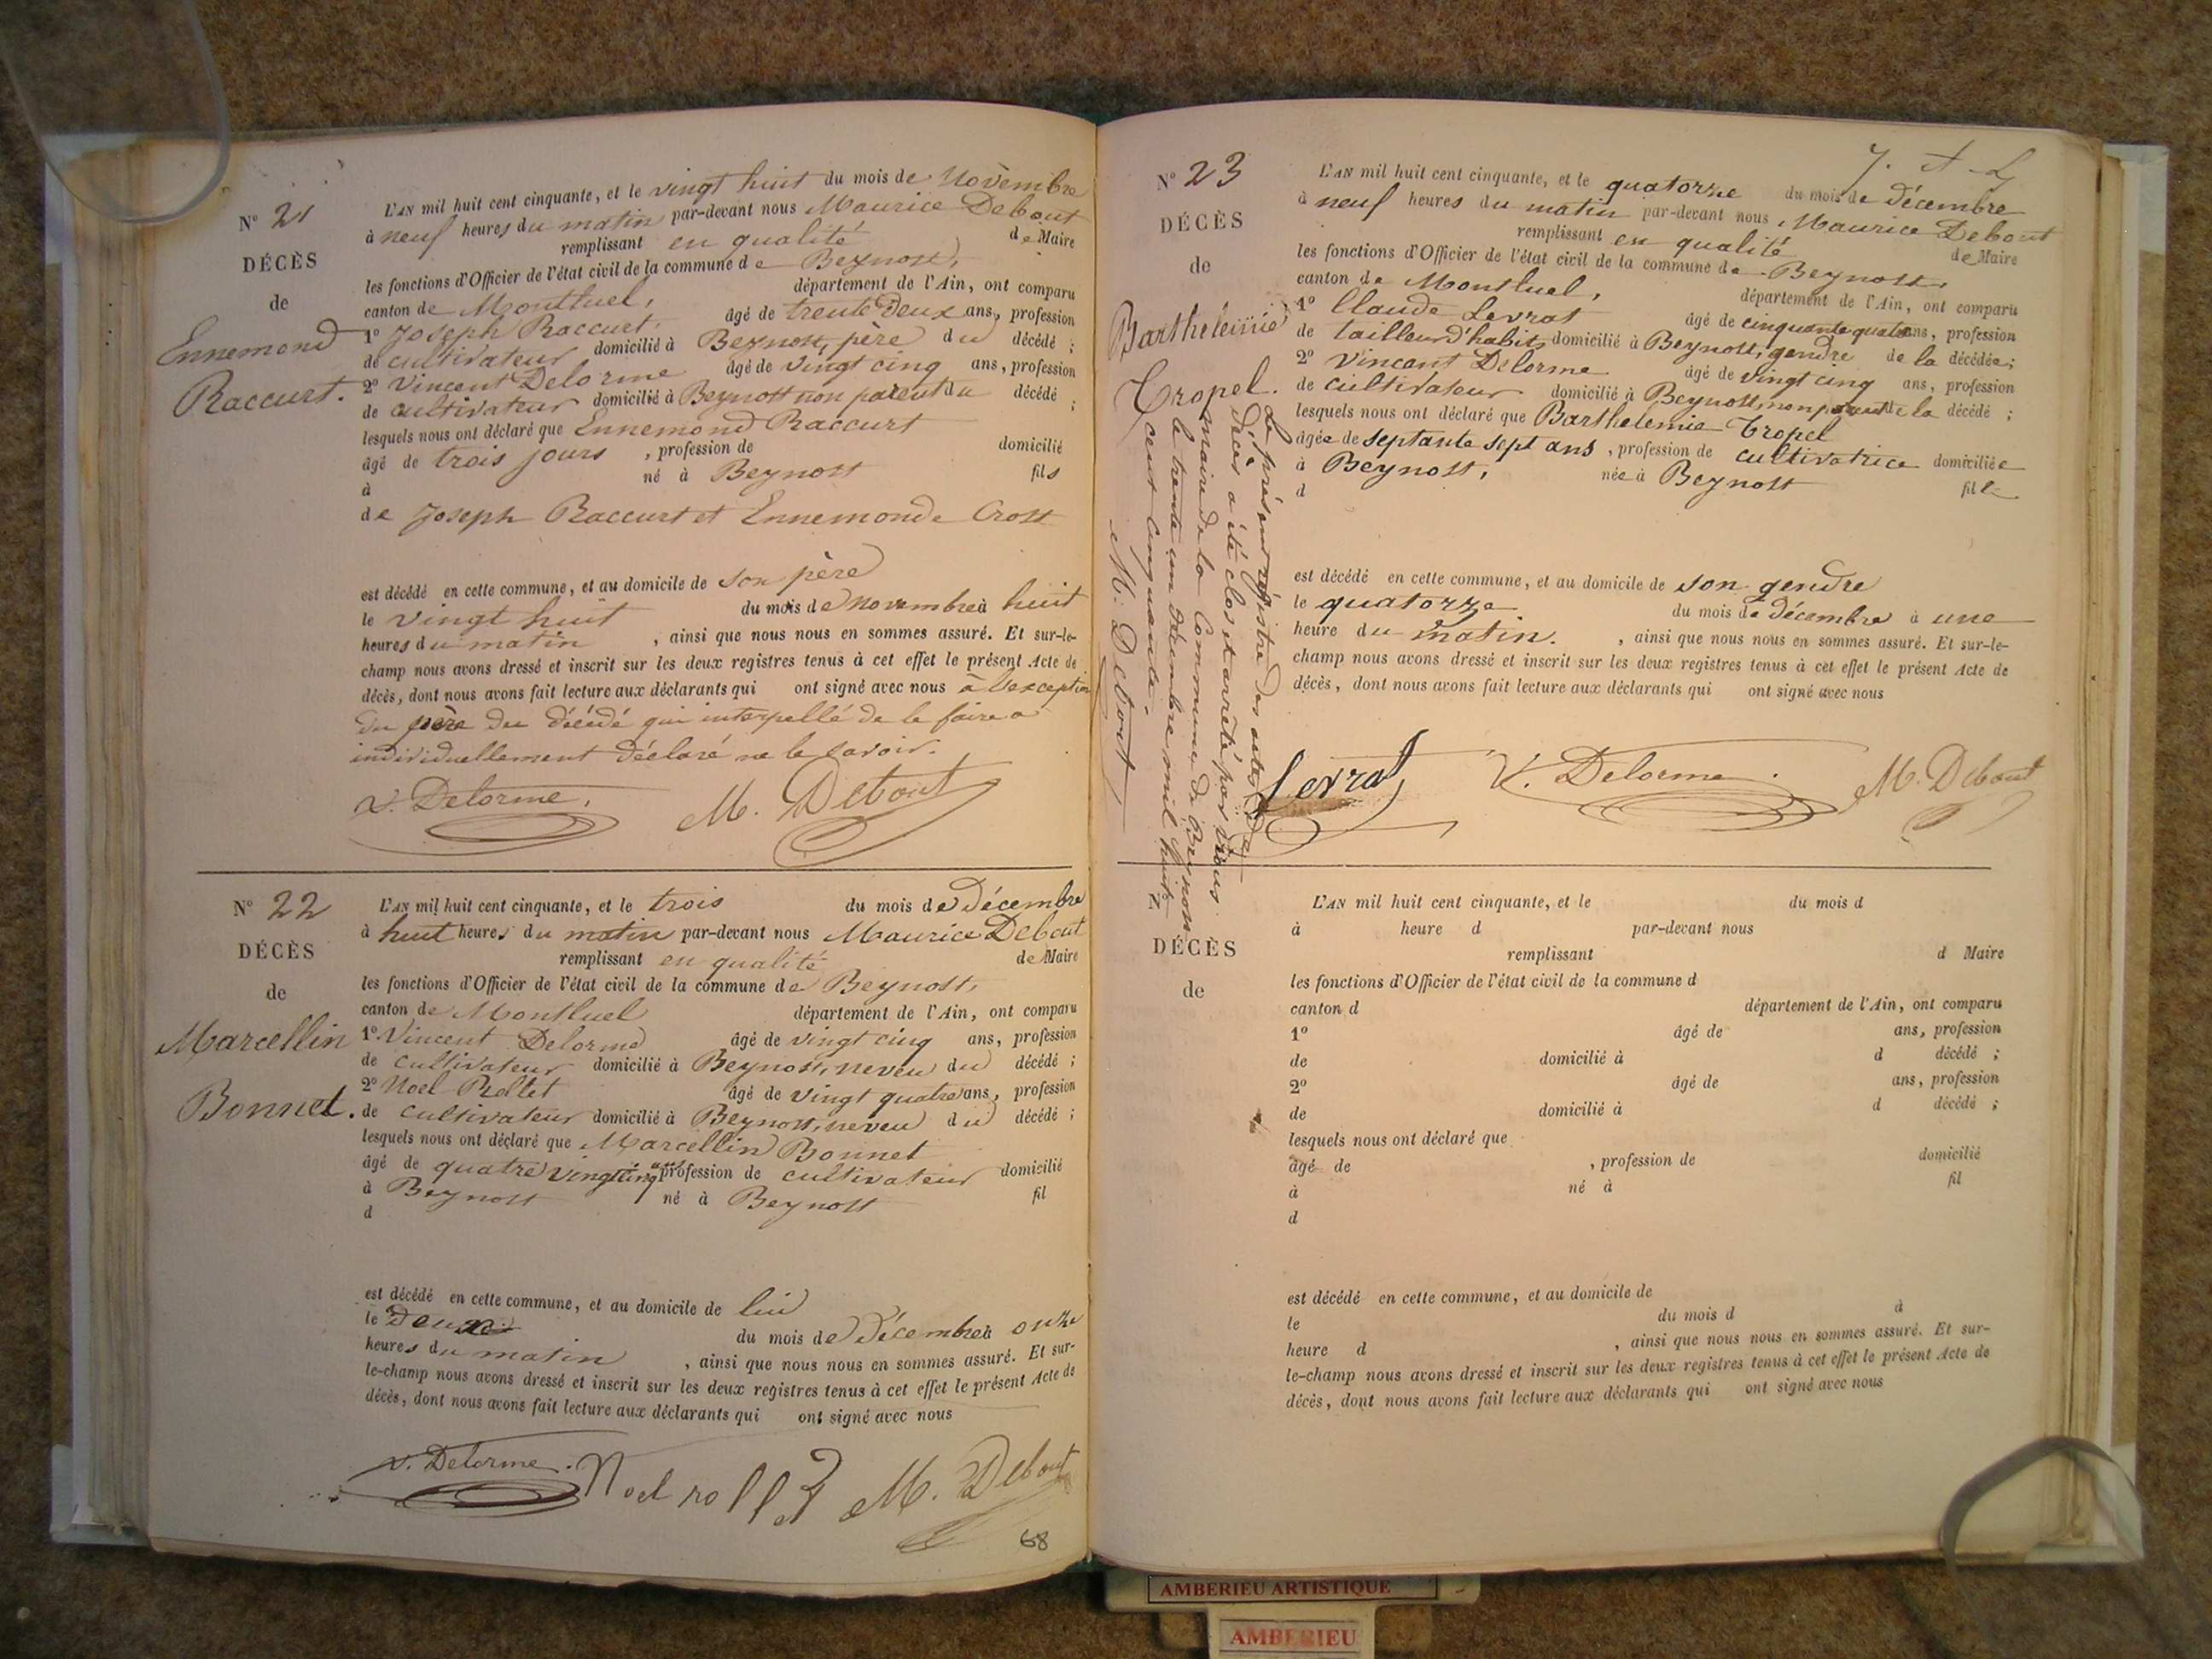 N° 21
DÉCÈS
de
Ennemond
Raccurt.
L'AN mil huit cent cinquante, et le vingt huit du mois de Novembre
à neuf heures du matin par-devant nous Maurice Debout
remplissant en qualité de Maire
les fonctions d'Officier de l'état civil de la commune de Beynost,
canton de Montluel, département de l'Ain, ont comparu
1° Joseph Raccurt, âgé de trente deux ans, profession
de cultivateur domicilié à Beynost, père du décédé ;
2° Vincent Delorme âgé de vingt cinq ans, profession
de cultivateur domicilié à Beynost non parent du décédé ;
lesquels nous ont déclaré que Ennemond Raccurt
âgé de trois jours , profession de domicilié
à né à Beynost fils
de Joseph Raccurt et Ennemonde Crost
est décédé en cette commune, et au domicile de son père
le vingt huit du mois de novembre à huit
heures du matin , ainsi que nous nous en sommes assuré. Et sur-le-
champ nous avons dressé et inscrit sur les deux registres tenus à cet effet le présent Acte de
décès, dont nous avons fait lecture aux déclarants qui ont signé avec nous à l'exception
du père du décédé qui interpellé de le faire a
individuellement déclaré ne le savoir.
V. Delorme. M. Debout
N° 22
DÉCÈS
de
Marcellin
Bonnet.
L'AN mil huit cent cinquante, et le trois du mois de Décembre
à huit heures du matin par-devant nous Maurice Debout
remplissant en qualité de Maire
les fonctions d'Officier de l'état civil de la commune de Beynost,
canton de Montluel département de l'Ain, ont comparu
1° Vincent Delorme âgé de vingt cinq ans, profession
de cultivateur domicilié à Beynost, neveu du décédé ;
2° Noel Rollet âgé de vingt quatre ans, profession
de cultivateur domicilié à Beynost, neveu du décédé ;
lesquels nous ont déclaré que Marcellin Bonnet
âgé de quatre vingt cinq ans profession de cultivateur domicilié
à Beynost né à Beynost fil
d
est décédé en cette commune, et au domicile de lui
le Deux du mois de Décembre à onze
heures du matin , ainsi que nous nous en sommes assuré. Et sur-
le-champ nous avons dressé et inscrit sur les deux registres tenus à cet effet le présent Acte de
décès, dont nous avons fait lecture aux déclarants qui ont signé avec nous
V. Delorme. Noel rollet M. Debout
68
N° 23
DÉCÈS
de
Barthélemie
Tropel.
L'AN mil huit cent cinquante, et le quatorze du mois de décembre
à neuf heures du matin par-devant nous Maurice Debout
remplissant en qualité de Maire
les fonctions d'Officier de l'état civil de la commune de Beynost,
canton de Montluel, département de l'Ain, ont comparu
1° Claude Levrat âgé de cinquante quatre ans, profession
de tailleur d'habits domicilié à Beynost, gendre de la décédée ;
2° Vincent Delorme âgé de vingt cinq ans, profession
de cultivateur domicilié à Beynost, non parent de la décédé ;
lesquels nous ont déclaré que Barthelemie Tropel
âgée de septante sept ans , profession de cultivatrice domiciliée
à Beynost, née à Beynost fille
d
est décédé en cette commune, et au domicile de son gendre
le quatorze du mois de décembre à une
heure du matin. , ainsi que nous nous en sommes assuré. Et sur-le-
champ nous avons dressé et inscrit sur les deux registres tenus à cet effet le présent Acte de
décès, dont nous avons fait lecture aux déclarants qui ont signé avec nous
Levrat V. Delorme. M. Debout
Le présent régistre des actes de
Décès a été clos et arrêté par nous
maire de la Commune de Beynost
le trente un décembre mil huit
cent cinquante.
M. Debout
DÉCÈS
de
L'AN mil huit cent cinquante, et le du mois d
à heure d par-devant nous
remplissant d Maire
les fonctions d'Officier de l'état civil de la commune d
canton d département de l'Ain, ont comparu
1° âgé de ans, profession
de domicilié à d décédé ;
2° âgé de ans, profession
de domicilié à d décédé ;
lesquels nous ont déclaré que
âgé de , profession de domicilié
à né à fil
d
est décédé en cette commune, et au domicile de
le du mois d à
heure d , ainsi que nous nous en sommes assuré. Et sur-
le-champ nous avons dressé et inscrit sur les deux registres tenus à cet effet le présent Acte de
décès, dont nous avons fait lecture aux déclarants qui ont signé avec nous
AMBERIEU ARTISTIQUE
AMBERIEU